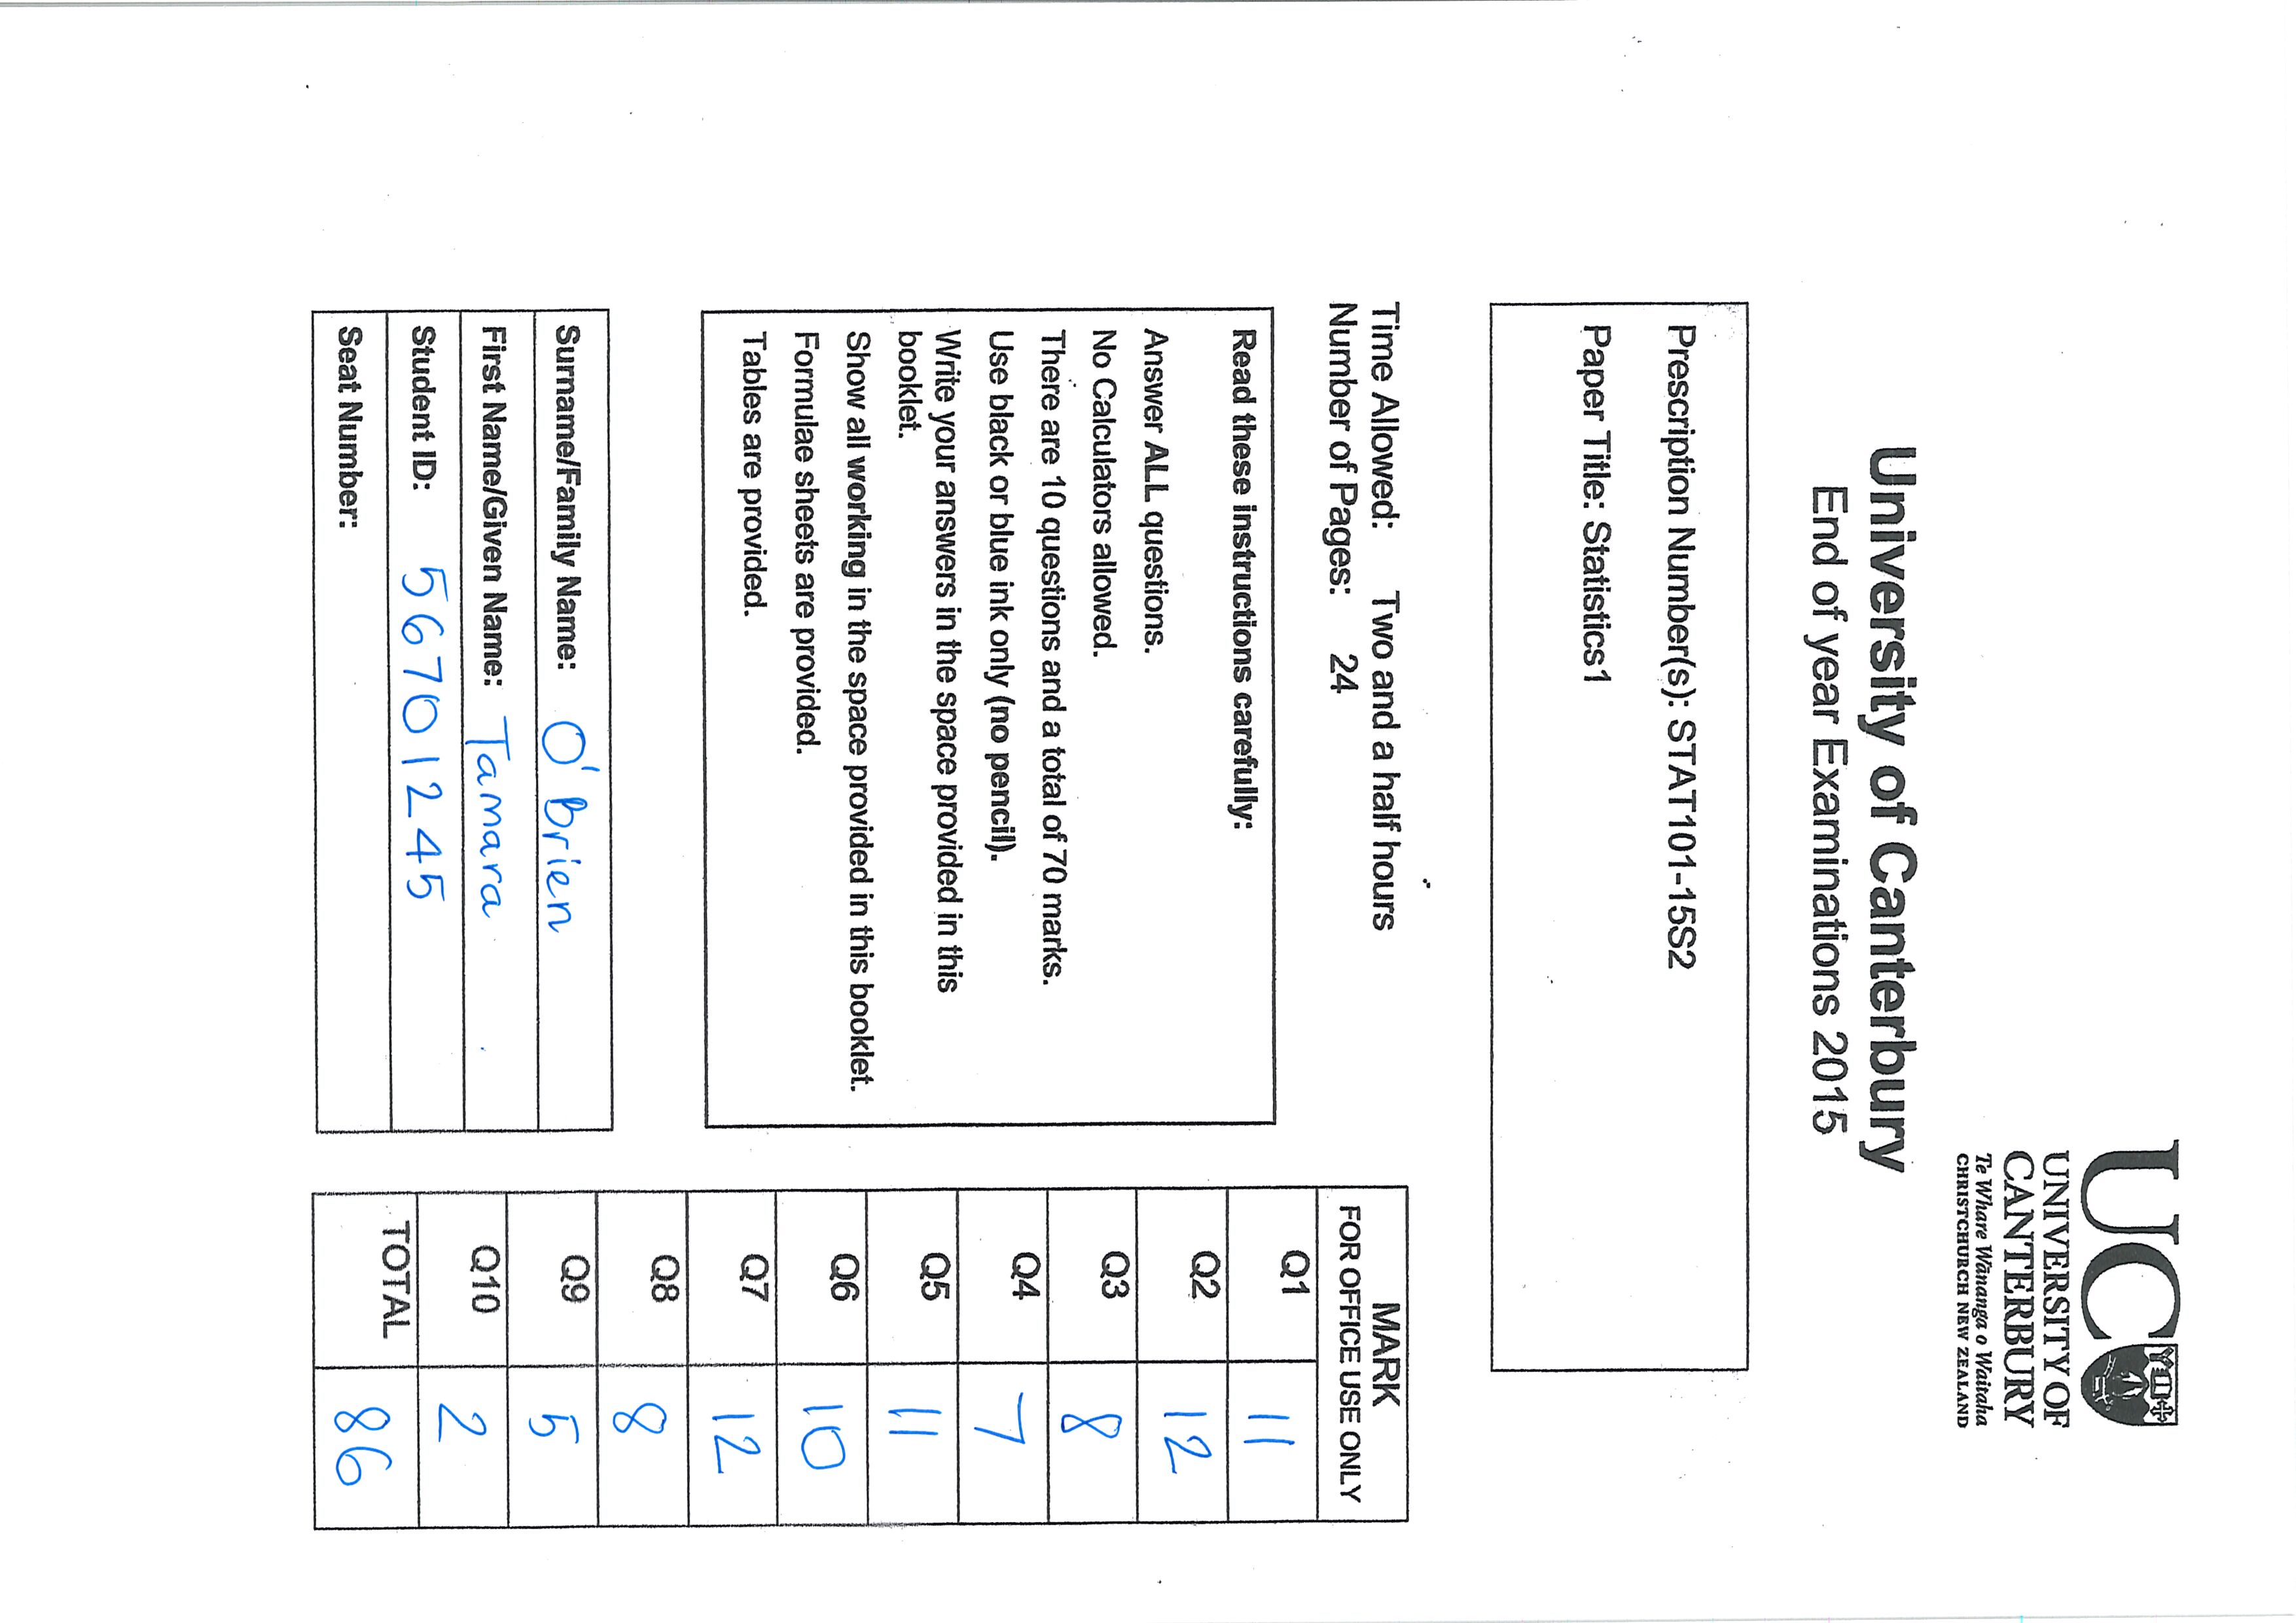 UC
UNIVERSITY OF
CANTERBURY
Te Whare Wānanga o Waitaha
CHRISTCHURCH NEW ZEALAND
University of Canterbury
End of year Examinations 2015
Prescription Number(s): STAT101-15S2
Paper Title: Statistics1
Time Allowed: Two and a half hours
Number of Pages: 24
Read these instructions carefully:
Answer ALL questions.
No Calculators allowed.
There are 10 questions and a total of 70 marks.
Use black or blue ink only (no pencil).
Write your answers in the space provided in this
booklet.
Show all working in the space provided in this booklet.
Formulae sheets are provided.
Tables are provided.
Surname/Family Name: O'Brien
First Name/Given Name: Tamara
Student ID: 56701245
Seat Number:
MARK
FOR OFFICE USE ONLY
Q1 11
Q2 12
Q3 8
Q4 7
Q5 11
Q6 10
Q7 12
Q8 8
Q9 5
Q10 2
TOTAL 86